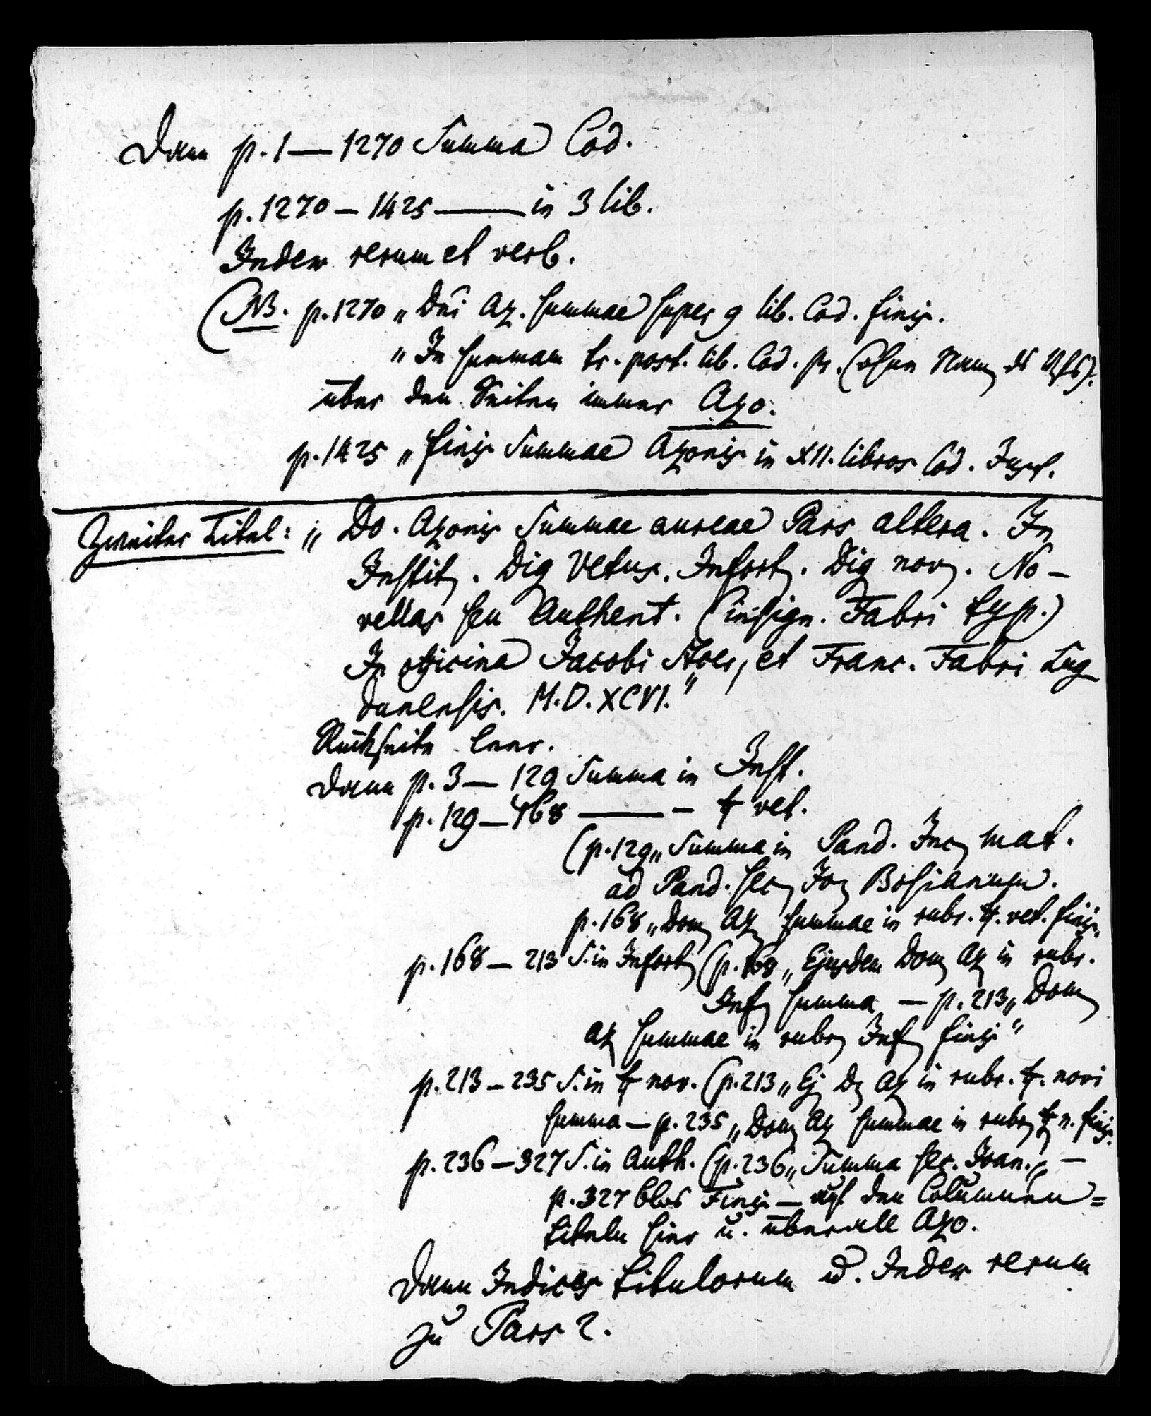 Dann p. 1 — 1270 Summa Cod.
p. 1270 — 1425 —— in 3 lib.
Index rerum et verb.
(NB. p. 1270 „Dni Az. summae super 9 lib. Cod. finis.
„In summam tr. post. lib. Cod. pr. (ohne Namen des Vfs).
über den Seiten immer Azo.
p. 1425 „finis Summae Azonis in XII. libros Cod. Just.
Zweiter Titel: „Do. Azonis Summae aureae Pars altera. In
Instit. Dig Vetus. Infort. Dig nov. No-
vellas seu Authent. (insign. Fabri typ.)
In officina Jacobi Stoer, et Franc. Fabri Lug
dunensis. M.D.XCVI."
Rückseite leer.
Dann p. 3 — 129 Summa in Inst.
p. 129 — 168 —— – ff vet.
(p. 129 „Summa in Pand. Inc mat.
ad Pand. sec Jo Bosianum.
p. 168 „Dom Az summae in rubr. ff. vet. finis.
p. 168 — 213 S. in Infort (p. 168 „Ejusdem Dom Az in rubr.
Inf summa — p. 213 „Dom
Az summae in rubr Inf finis"
p. 213 — 235 S. in ff nov. (p. 213 „Ej D Az in rubr. ff. novi
summa — p. 235 „Dom Az summae in rubr ff n. finis.
p. 236 — 327 S. in Auth. (p. 236 „Summa sec. Joan. —
p. 327 blos Finis — auf den Columnen=
titeln hier u. überall Azo.
Dann Indices titulorum u. Index rerum
zu Pars 2.